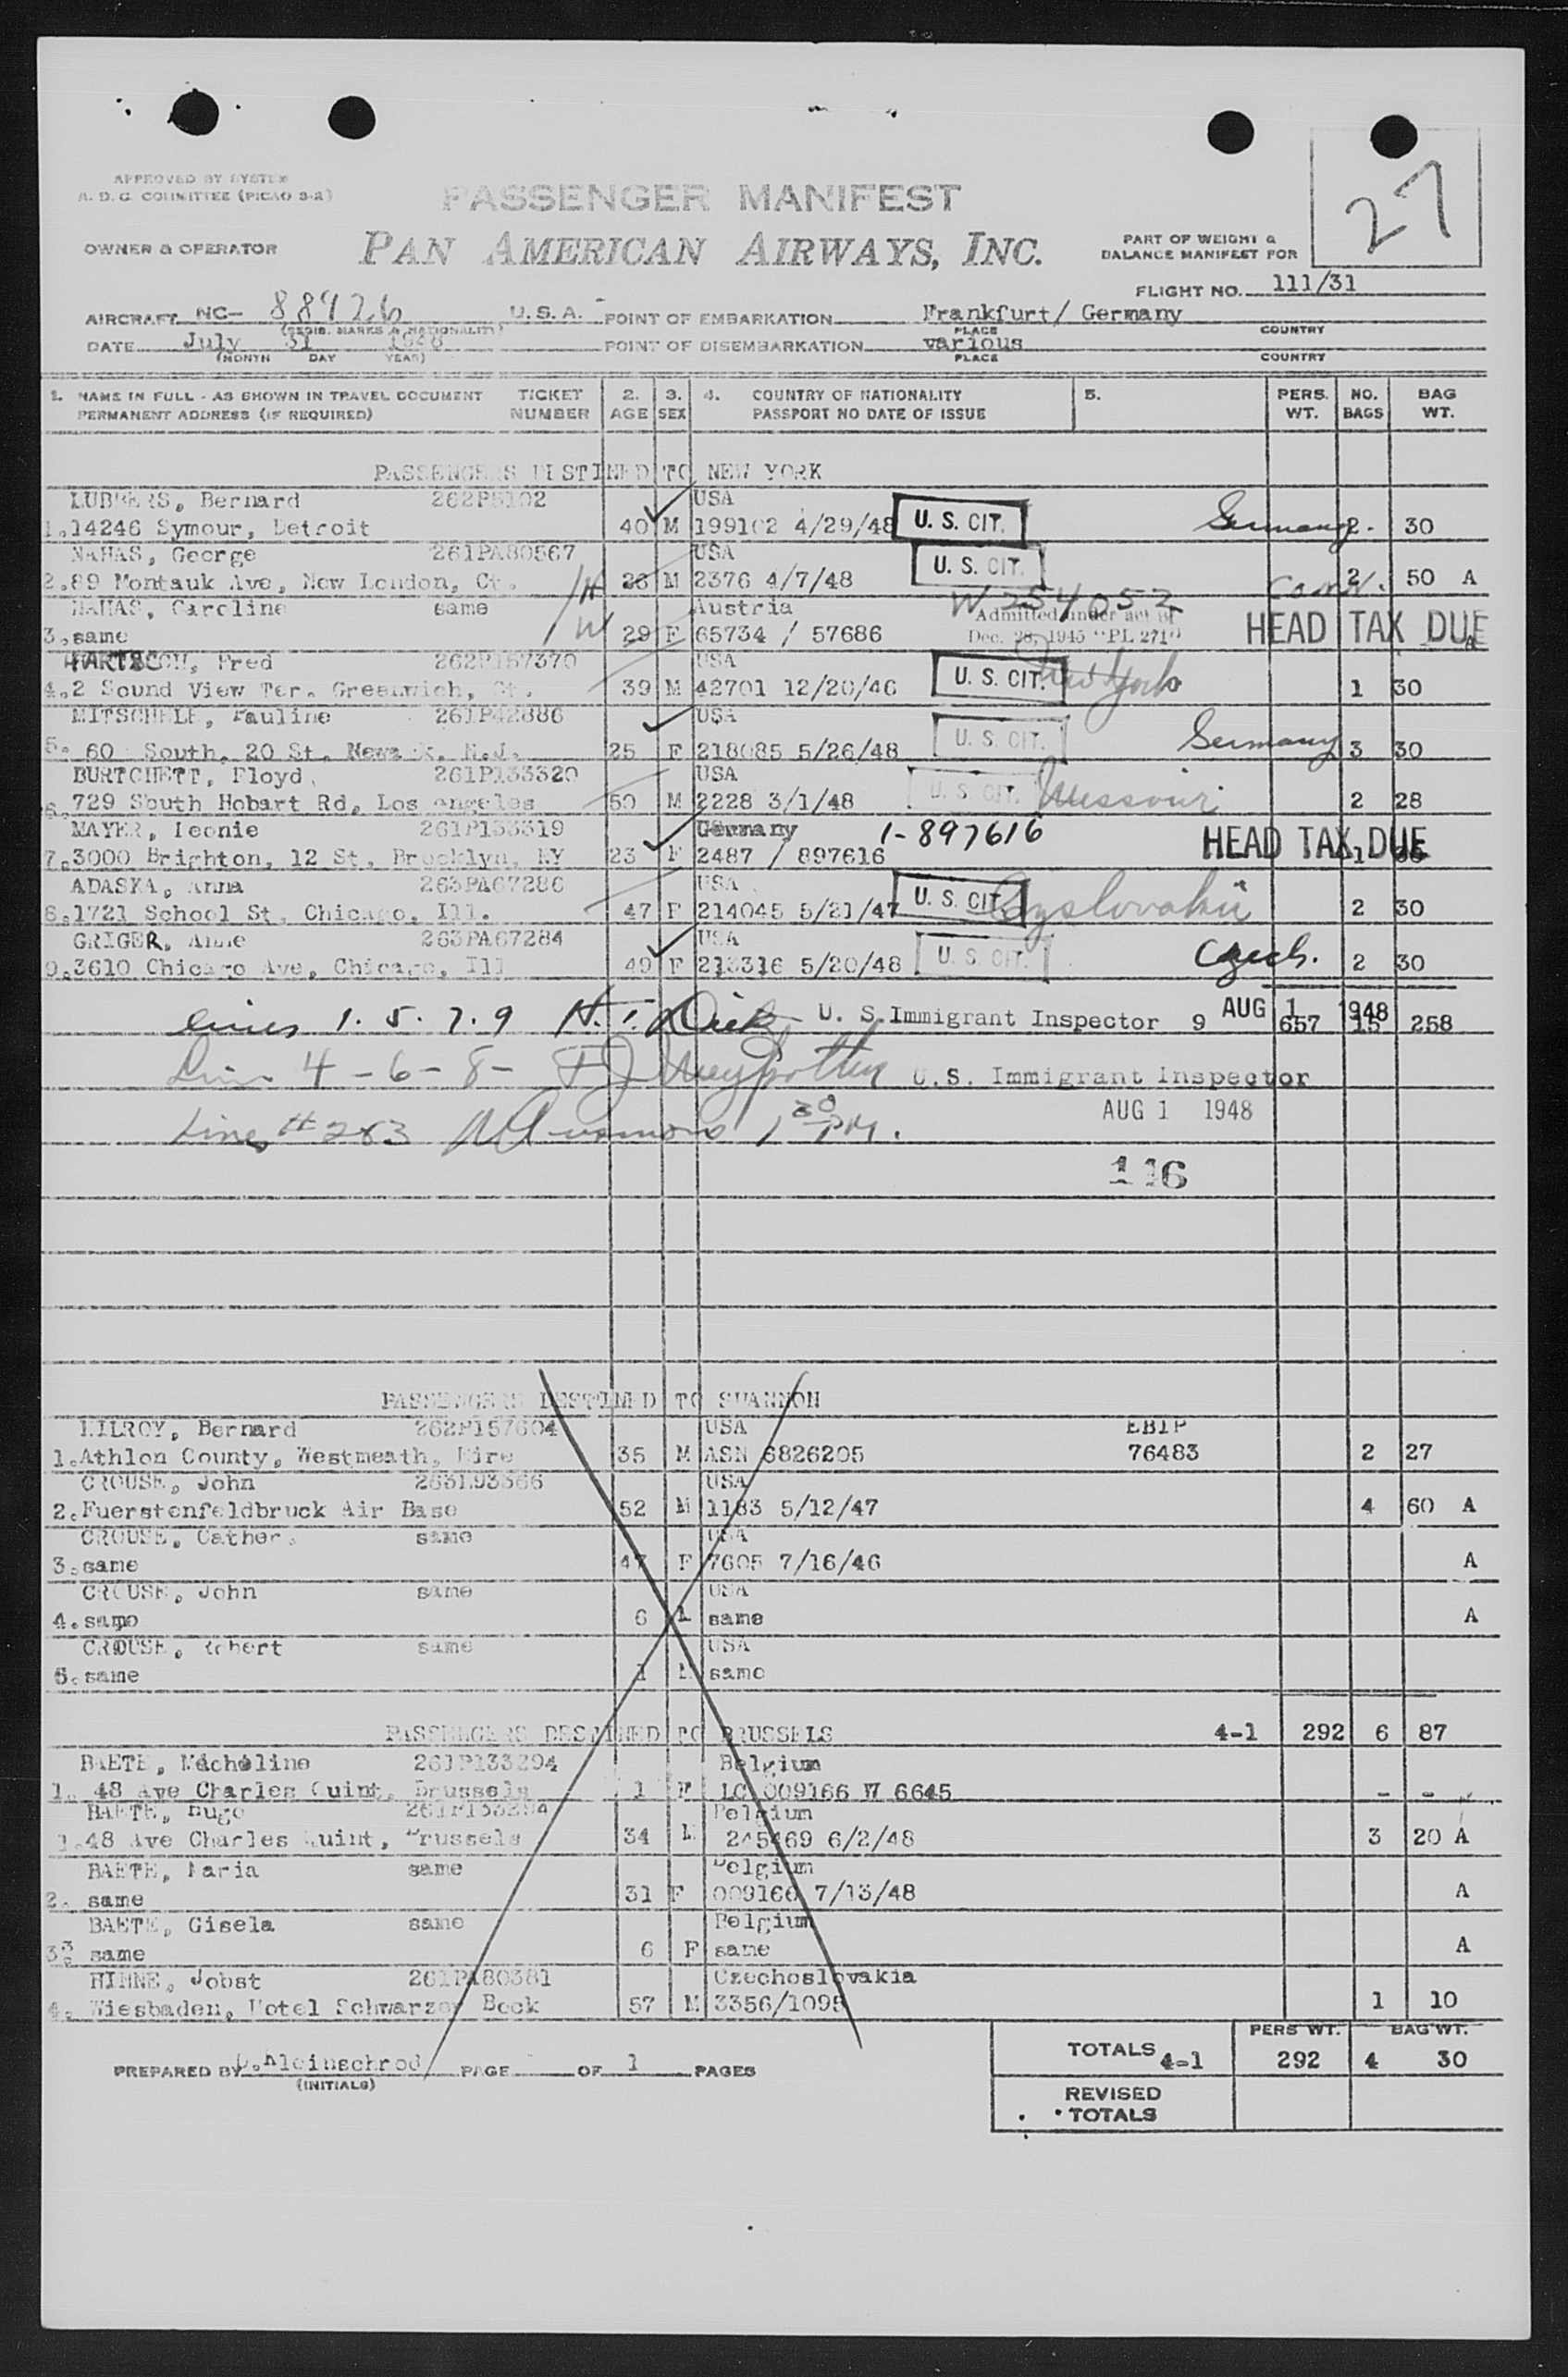 APPROVED BY SYSTEM
A. D. C. COMMITTEE (PICAO 3-2)
PASSENGER MANIFEST
27
OWNER & OPERATOR PAN AMERICAN AIRWAYS, INC. PART OF WEIGHT &
BALANCE MANIFEST FOR
FLIGHT NO. 111/31
AIRCRAFT NC- 88926 U. S. A. POINT OF EMBARKATION Frankfurt/ Germany
(REGIS. MARKS & NATIONALITY) PLACE COUNTRY
DATE July 31 1948 POINT OF DISEMBARKATION various
(MONTH DAY YEAR) PLACE COUNTRY
1. NAME IN FULL - AS SHOWN IN TRAVEL DOCUMENT TICKET 2. 3. 4. COUNTRY OF NATIONALITY 5. PERS. NO. BAG
PERMANENT ADDRESS (IF REQUIRED) NUMBER AGE SEX PASSPORT NO DATE OF ISSUE WT. BAGS WT.
PASSENGERS DISTINED TO NEW YORK
LUBBERS, Bernard USA
1.14246 Symour, Detroit 40 M 199102 4/29/48 U. S. CIT. Germany 2. 30
NAHAS, George 261PA80567 USA
2.89 Montauk Ave, New London, Ct. 26 M 2376 4/7/48 U. S. CIT. 2 50 A
NAHAS, Caroline same Austria W 254052
3.same 29 F 65734 / 57686 Admitted under act of Dec. 28, 1945 "PL 271" HEAD TAX DUE A
HARTSCOH, Fred 262P157370 USA
4.2 Sound View Ter. Greenwich, Ct. 39 M 42701 12/20/46 U. S. CIT. New York 1 30
MITSCHELE, Pauline 261P42886 USA
5. 60 South, 20 St. Newark, N.J. 25 F 218085 5/26/48 U. S. CIT. Germany 3 30
BURTCHETT, Floyd 261P133320 USA
6.729 South Hobart Rd, Los Angeles 50 M 2228 3/1/48 U. S. CIT. Missouri 2 28
MAYER, Leonie 261P133319 Germany 1-897616
7.3000 Brighton, 12 St, Brooklyn, NY 23 F 2487 / 897616 HEAD TAX DUE 1
ADASKA, Anna 263PA67286 USA
8.1721 School St, Chicago, Ill. 47 F 214045 5/21/47 U. S. CIT. 2 30
GRIGER, Anne 263PA67284 USA
9.3610 Chicago Ave, Chicago, Ill 49 F 213316 5/20/48 U. S. CIT. Czech. 2 30
lines 1. 5. 7. 9 U. S.Immigrant Inspector 9 AUG 1 1948 657 15 258
Lines 4 - 6 - 8 - U.S. Immigrant Inspector
AUG 1 1948
Lines # 2&3 1 30 PM.
116
PASSENGERS DESTINED TO SHANNON
KILROY, Bernard 262P157604 USA EBIP
1.Athlon County, Westmeath, Eire 35 M ASN 6826205 76483 2 27
CROUSE, John 263L93366 USA
2.Fuerstenfeldbruck Air Base 52 M 1183 5/12/47 4 60 A
CROUSE, Cather. same USA
3.same 47 F 7605 7/16/46 A
CROUSE, John same USA
4.same 6 M same A
CROUSE, Robert same USA
5.same 1 M same
PASSENGERS DESTINED TO BRUSSELS 4-1 292 6 87
BAETE, Micheline 261P133294 Belgium
1. 48 Ave Charles Quint, Brussels 1 F LC 009166 W 6645 - -
BAETE, Hugo 261P133294 Belgium
1.48 Ave Charles Quint, Brussels 34 M 245469 6/2/48 3 20 A
BAETE, Maria same Belgium
2. same 31 F 009166 7/13/48 A
BAETE, Gisela same Belgium
3. same 6 F same A
HINNE, Jobst 261PA80381 Czechoslovakia
4. Wiesbaden, Hotel Schwarzer Bock 57 M 3356/1095 1 10
PERS WT. BAG WT.
TOTALS 4-1 292 4 30
PREPARED BY D.Kleinschrod PAGE OF 1 PAGES
(INITIALS)
REVISED
TOTALS